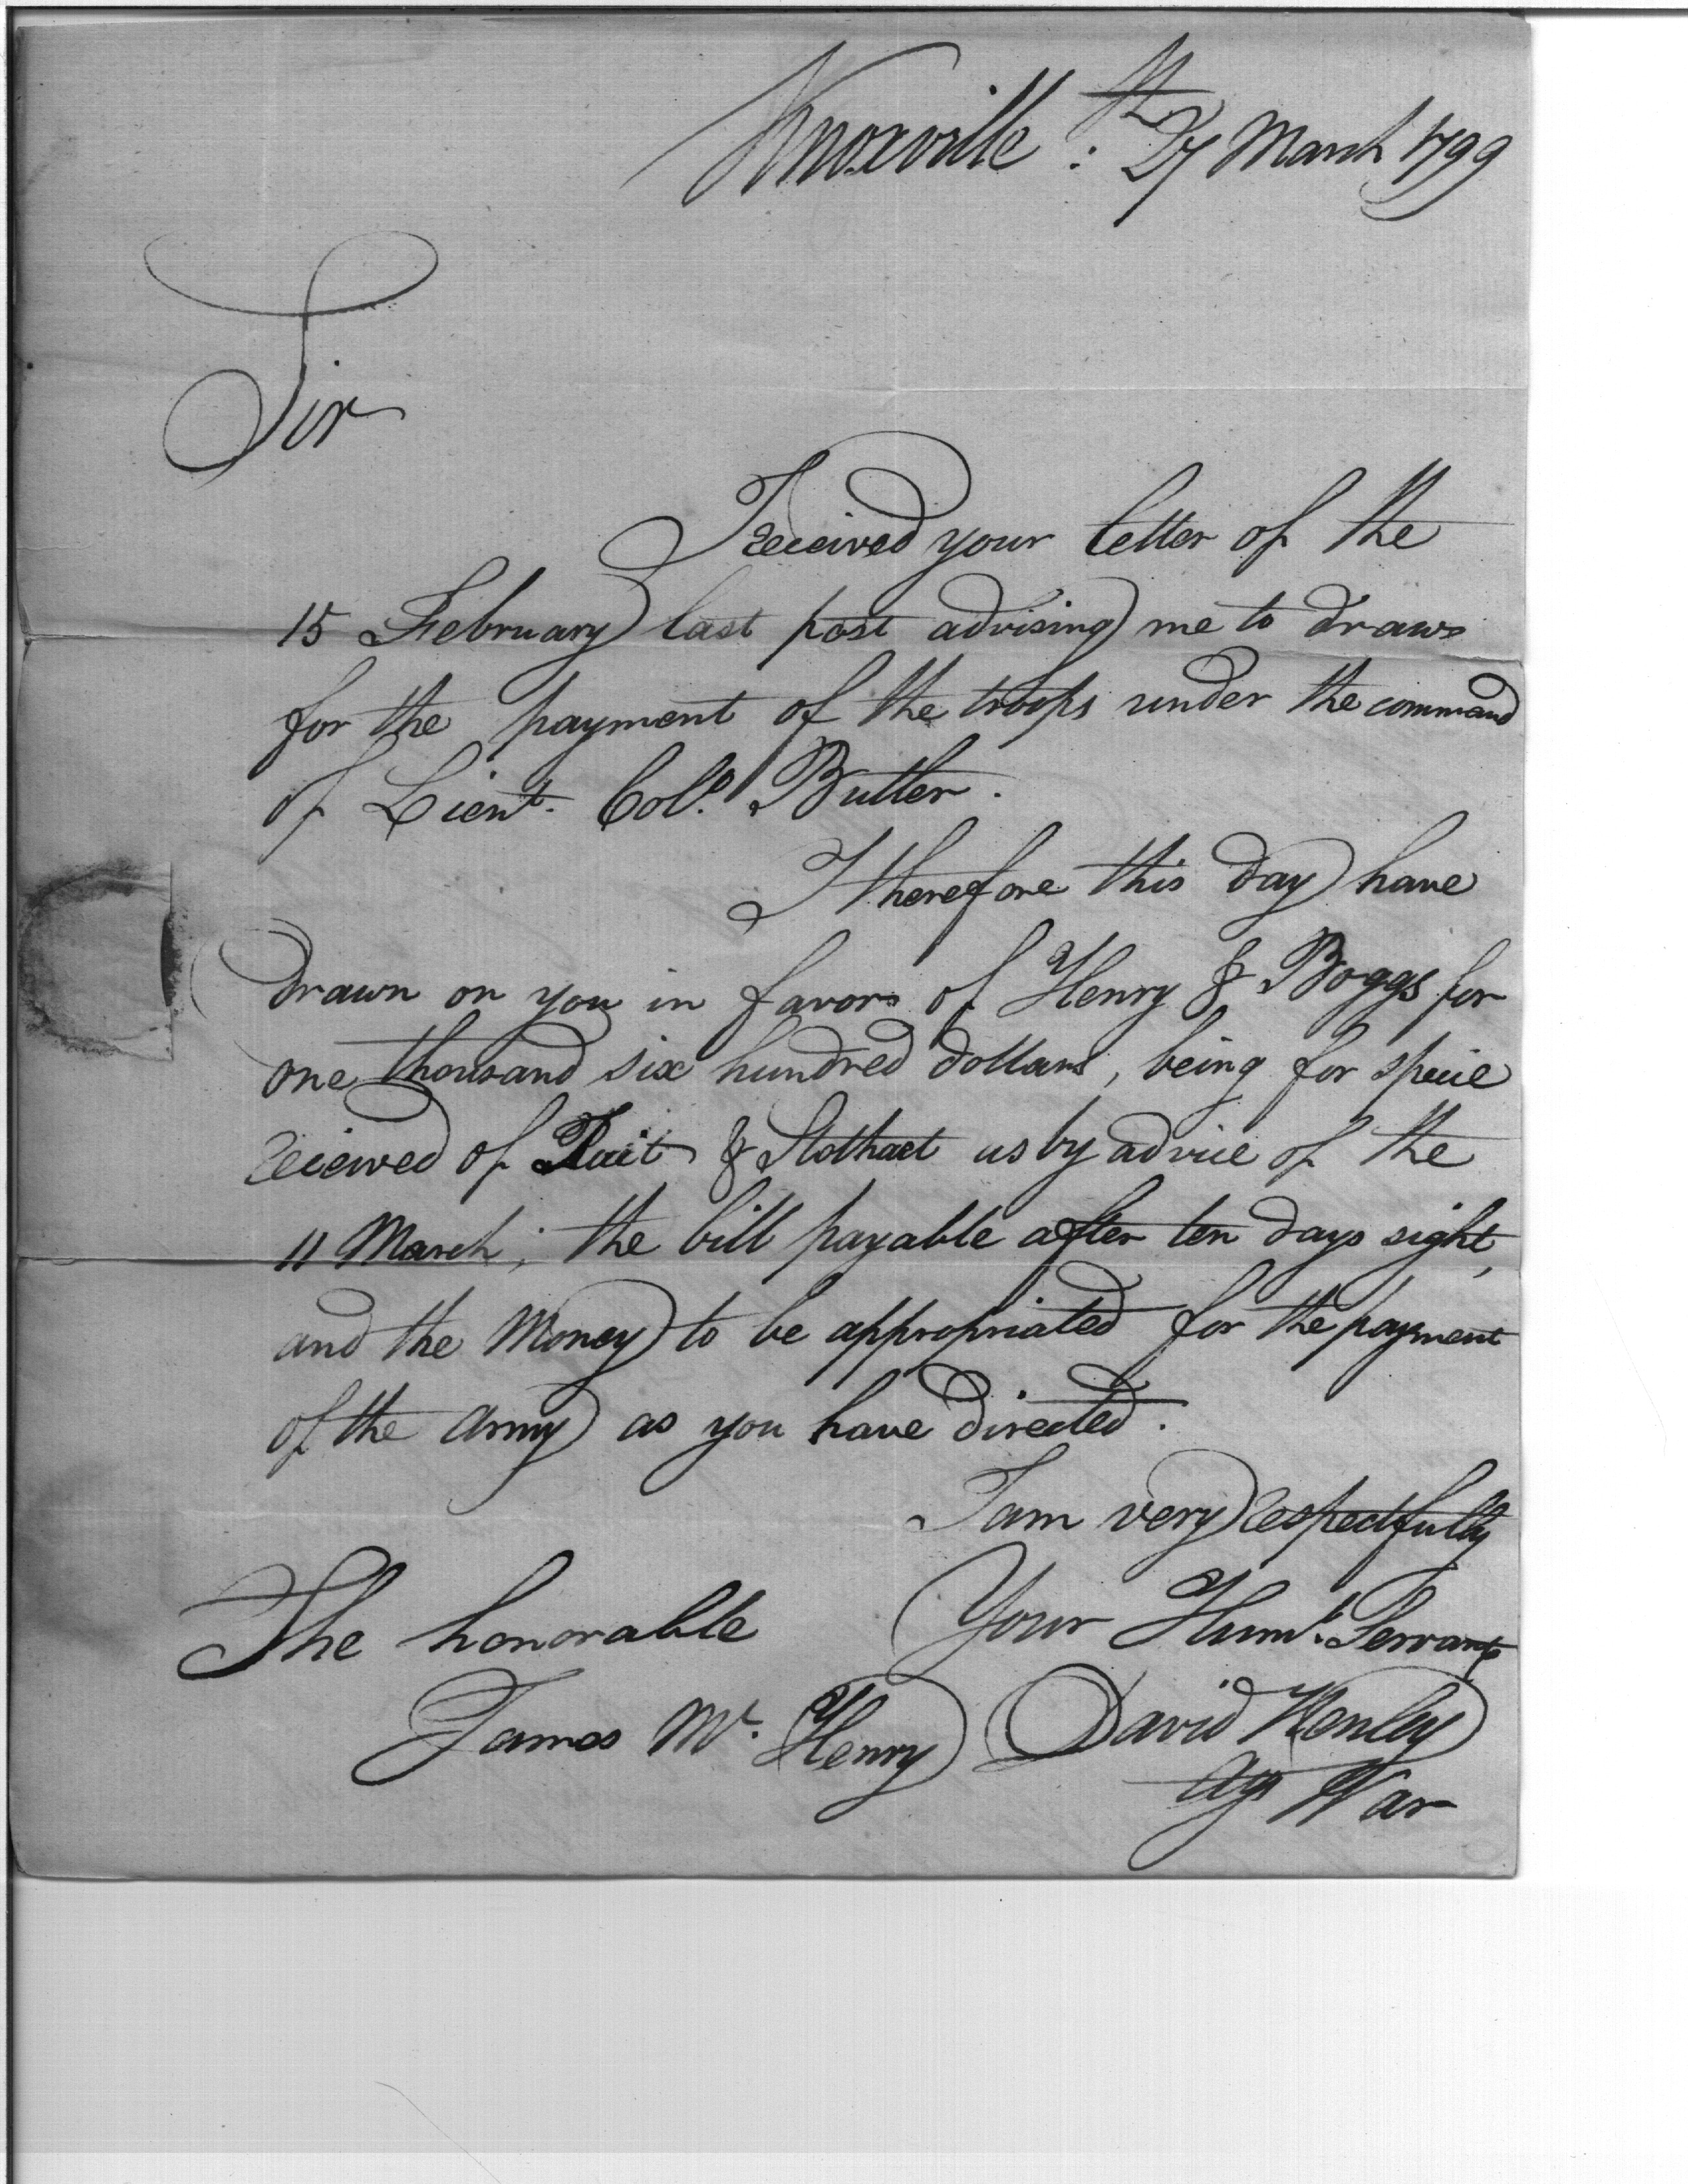 Knoxville : 27th March 1799
Sir
I received your letter of the
15 February last post advising me to draw
for the payment of the troops under the command
of Lieut. Colo. Butler.
I therefore this day have
drawn on you in favor of Henry & Boggs for
one thousand six hundred dollars, being for specie
received of Tait & Stothart as by advice of the
11 March; the bill payable after ten days sight,
and the Money to be appropriated for the payment
of the Army as you have directed.
I am very respectfully
Your Humb. Servant
David Henley
Agt War
The honorable
James Mc. Henry